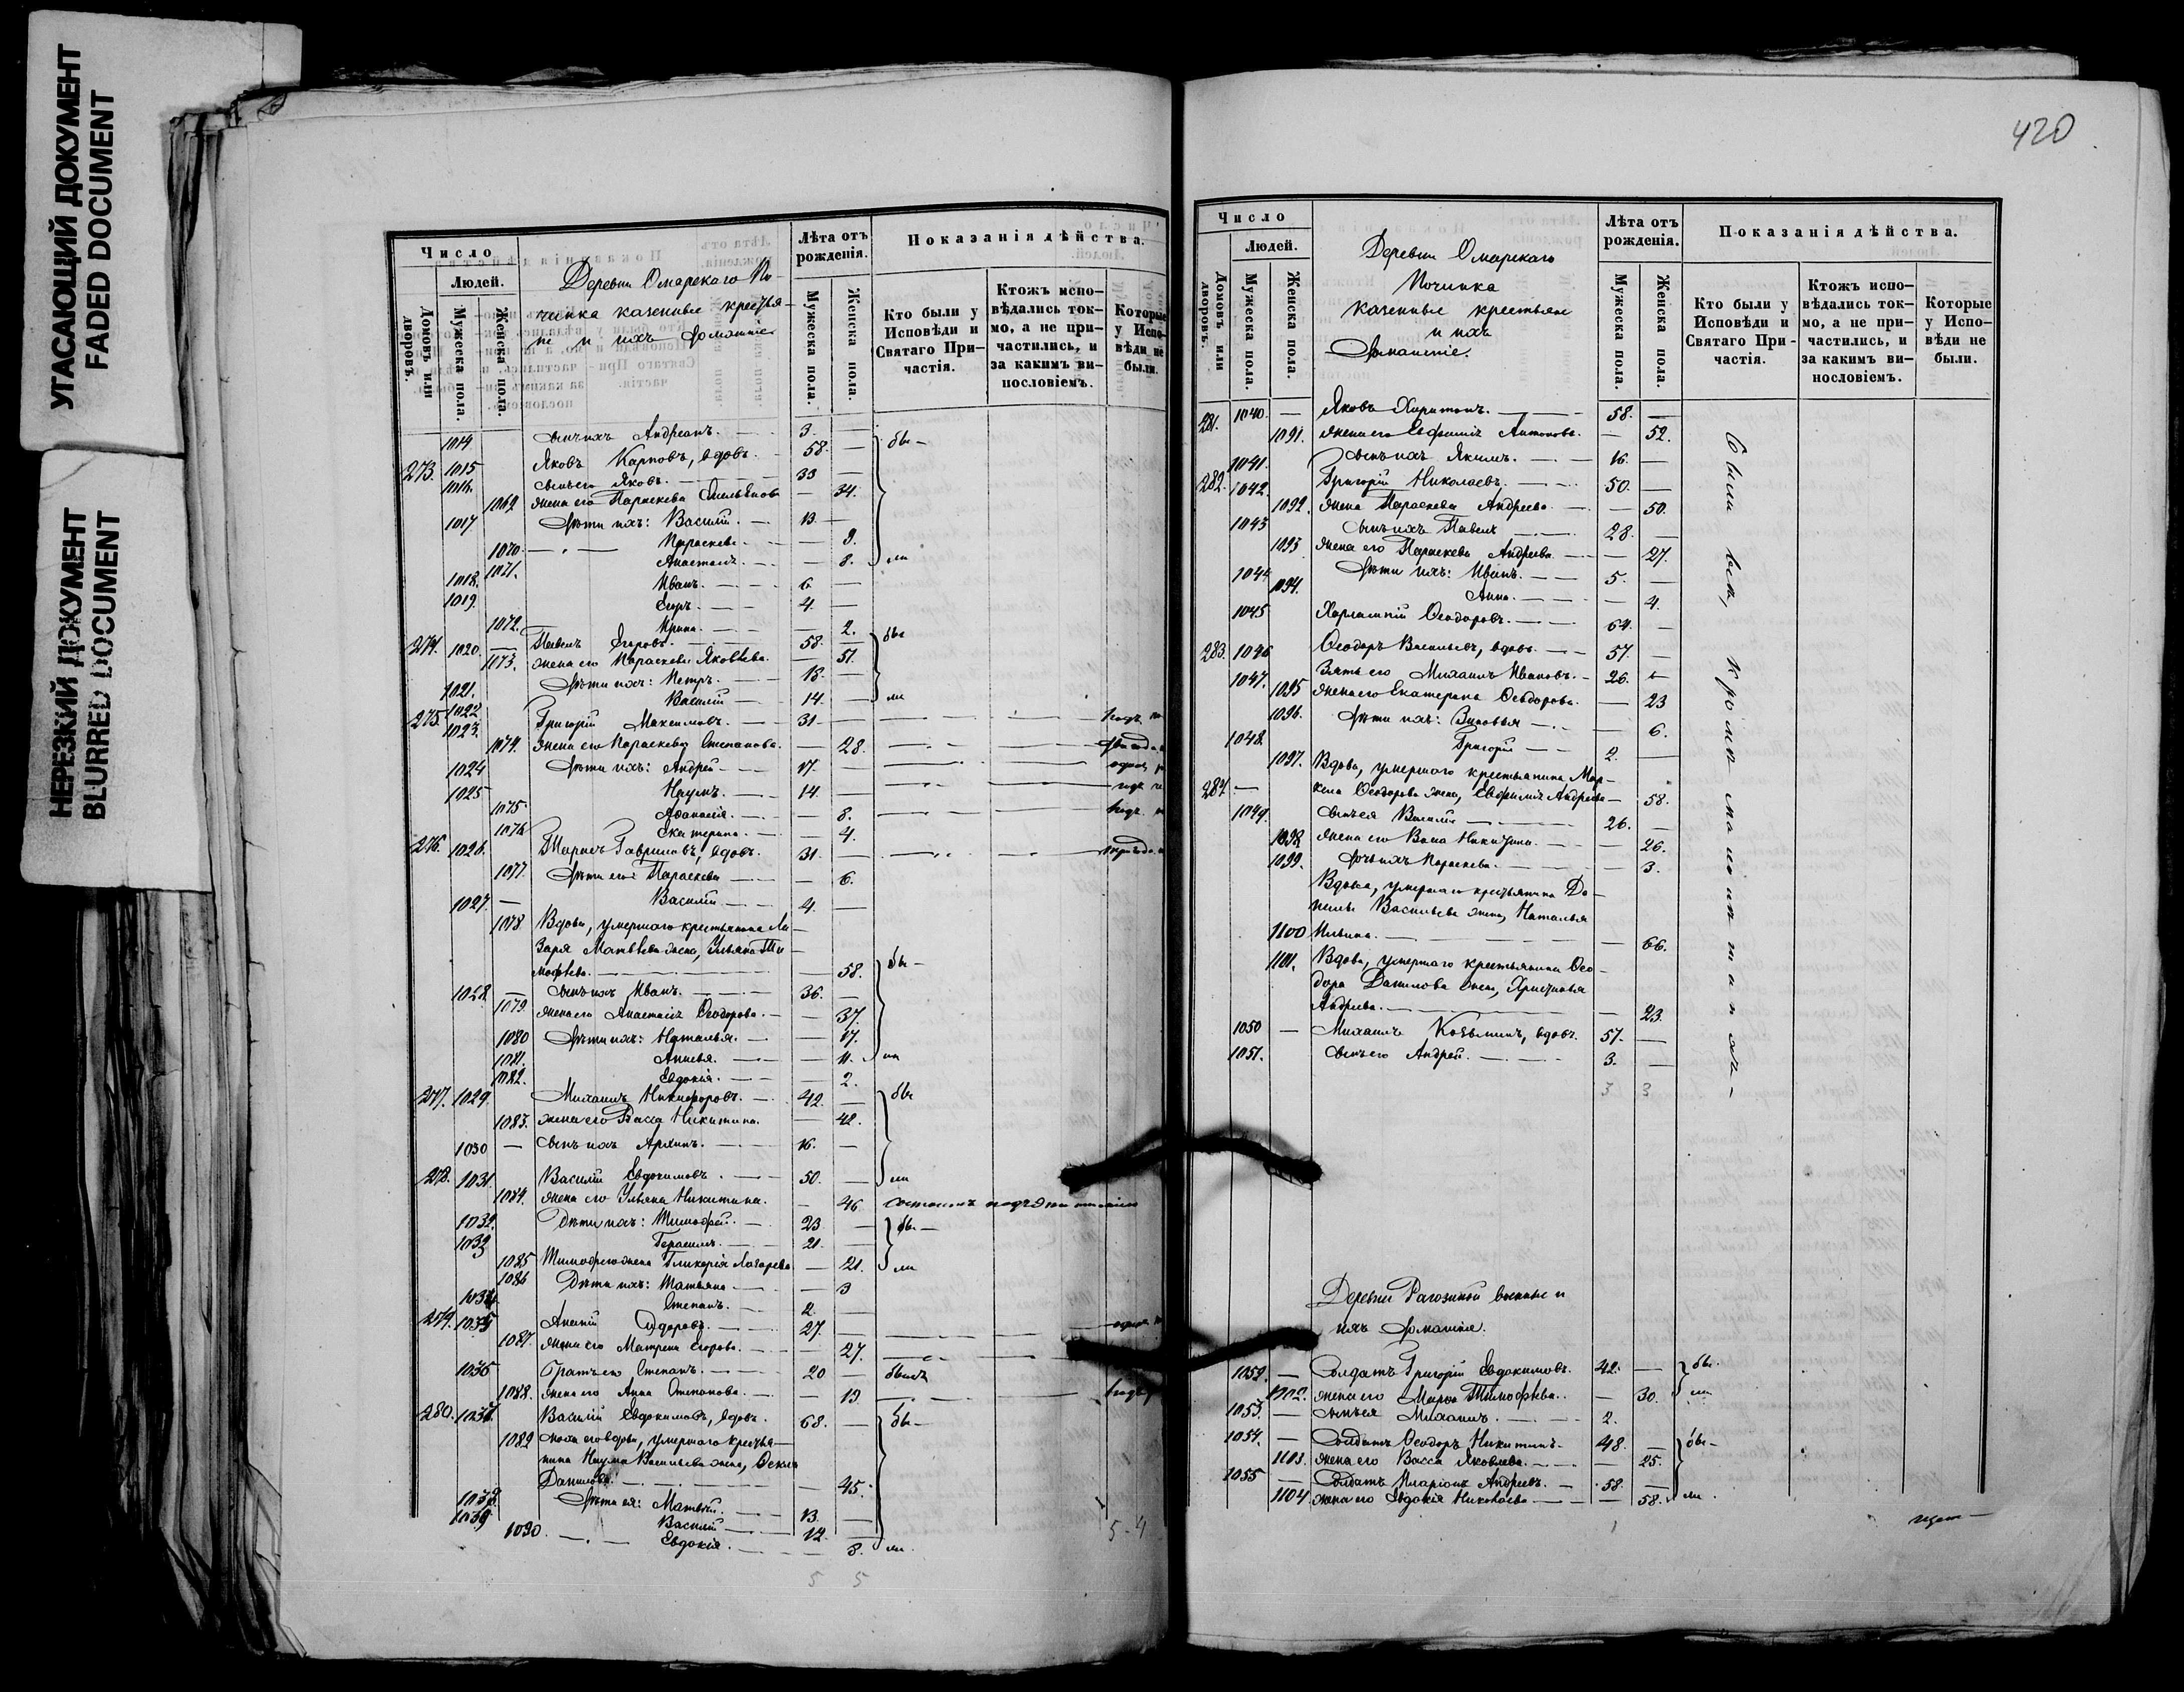 УГАСАЮЩИЙ ДОКУМЕНТ
FADED DOCUMENT
НЕРЕЗКИЙ ДОКУМЕНТ
BLURRED DOCUMENT
Число
Людей.
Домовъ или дворовъ.
Мужеска пола.
Женска пола.
Деревни Омарскаго По-
чинка казенные крестья-
не и ихъ домашніе
Лѣта отъ рожденія.
Мужеска пола.
Женска пола.
Показанія дѣйства.
Кто были у Исповѣди и Святаго Причастія.
Ктожъ исповѣдались токмо, а не причастились, и за какимъ винословіемъ.
Которые у Исповѣди не были.
1014 сынъ ихъ Андреанъ. 3. — бы-
273. 1015 Яковъ Карповъ, вдовъ. 58. —
1016. сынъ его Яковъ. 33 —
1069 жена его Параскева — 34.
1017 Дѣти ихъ: Василій. 13. —
1070. Параскева — 9.
1071. Анастасія. — 8. ли
1018. Иванъ. 6. —
1019. Егоръ. 4. —
1072. Ирина. — 2.
274. 1020. Павелъ Егоровъ. 58. — бы
1073. жена его Параскева Яковлева. — 51.
1021. Дѣти ихъ: Петръ. 18. —
1022 Василій 14. — ли
275. 1023. Григорій Максимовъ. 31 —
1074. жена его Параскева Степанова. — 28.
1024 Дѣти ихъ: Андрей 17. —
1025 Наумъ. 14. —
1075 Аѳанасія. — 8.
1076 Екатерина. — 4.
276. 1026. Гавриловъ, вдовъ. 31. —
1077. Дѣти его: Параскева — 6.
1027. — Василій 4. —
1078 Вдова, умершаго крестьянина Ла-
заря Матвѣева жена, Ульяна Ти-
мофѣева. — 58. бы-
1028 — сынъ ихъ Иванъ. 36. —
1079. жена его Анастасія Ѳеодорова. — 37.
1080 Дѣти ихъ: Наталья. — 17.
1081. Анисья. — 11. ли
1082. Евдокія. — 2.
277. 1029. Михаилъ Никифоровъ. 42. — бы
1083. жена его Васса Никитина. — 42.
1030 — сынъ ихъ Архипъ. 16. —
278. 1031. Василій Евдокимовъ. 50. — ли
1084. жена его Ульяна Никитина. — 46 состоитъ подъ Эпитиміею
1032. Дѣти ихъ: Тимофей. 23 — бы-
1033 Герасимъ. 21. —
1085 Тимофея жена Гликерія Лазарева — 21. ли
1086 Дѣти ихъ: Татьяна — 3
1034 Степанъ. 2. —
279. 1035 Ананій Сидоровъ. 27. —
1087. жена его Матрена Егорова. — 27.
1036 Братъ его Степанъ. 20 — былъ
1088. жена его Анна Степанова. — 19
280. 1037. Василій Евдокимовъ, вдовъ. 68. — бы-
1089 сноха его вдова, умершаго крестья-
нина Наума Васильева жена, Ѳекла
Данилова. — 45.
1038. Дѣти ея: Матвѣй. 13. —
1039 Василій 12. —
1090. Евдокія. — 8. ли.
5-4
5 5
420
Число
Людей.
Домовъ или дворовъ.
Мужеска пола.
Женска пола.
Деревни Омарскаго
Починка
казенные крестьяне
и ихъ
домашніе.
Лѣта отъ рожденія.
Мужеска пола.
Женска пола.
Показанія дѣйства.
Кто были у Исповѣди и Святаго Причастія.
Ктожъ исповѣдались токмо, а не причастились, и за какимъ винословіемъ.
Которые у Исповѣди не были.
Были всѣ, кромѣ малолѣтнихъ-
281. 1040. — Яковъ Харитонъ. 58. —
1091. жена его Евфимія Антонова. — 52.
1041. сынъ ихъ Якимъ. 16. —
282. 1042. Григорій Николаевъ. 50. —
1092. жена Параскева Андреева. — 50.
1043 сынъ ихъ Павелъ 28. —
1093 жена его Параскева Андреева. — 27.
1044 Дѣти ихъ: Иванъ. 5. —
1094. Анна. — 4.
1045 Харлампій Ѳеодоровъ. 64. —
283. 1046 Ѳеодоръ Васильевъ, вдовъ. 57. —
1047. Зять его Михаилъ Ивановъ. 26. —
1095 жена его Екатерина Ѳеодорова. — 23
1096. Дѣти ихъ: Зиновья — 6.
1048. Григорій 2. —
1097. Вдова, умершаго крестьянина Мар-
284. — кела Ѳеодорова жена, Евфимія Андреева — 58.
1049. сынъ ея Василій 26. —
1098 жена его Васса Никитина. — 26.
1099. дочь ихъ Параскева. — 3.
Вдова, умершаго крестьянина Да-
нилы Васильева жена, Наталья
1100 Ильина. — 66.
1101. Вдова, умершаго крестьянина Ѳео-
дора Данилова жена, Христинья
Андреева. — 23.
1050 — Михаилъ Козьминъ, вдовъ. 57. —
1051. сынъ его Андрей. 3. —
3 3
Деревни Рагозиной военные и
ихъ домашніе.
1052. — Солдатъ Григорій Евдокимовъ. 42. — бы.
1102. жена его Марѳа Тимофѣева. — 30. ли
1053. — сынъ ея Михаилъ. 2.
1054. — Солдатъ Ѳеодоръ Никитинъ. 48. — бы-
1103. жена его Васса Яковлева. — 25.
1055 — Солдатъ Иларіонъ Андреевъ. 58. —
1104. жена его Евдокія Николаева — 58. ли.